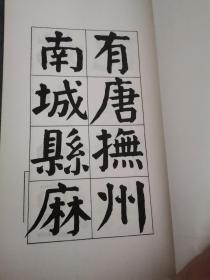 有唐撫州
南城縣麻